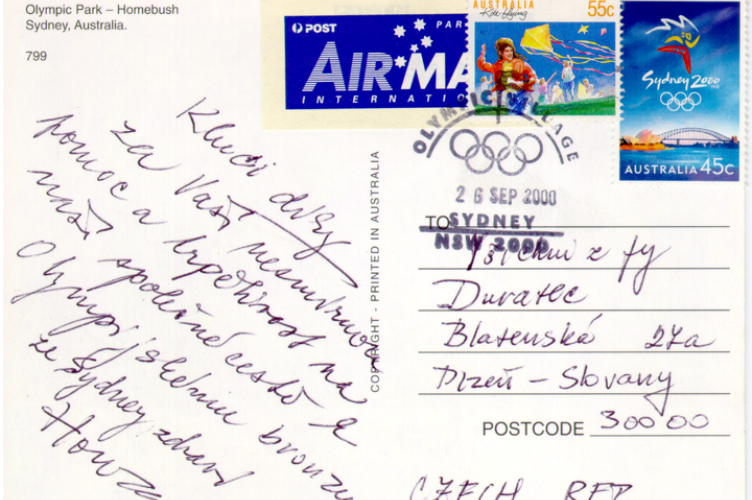 Olympic Park – Homebush
Sydney, Australia.
799
POST
PAR
AIRMA
INTERNATIO
AUSTRALIA 55c
Kite Flying
Sydney 2000
AUSTRALIA 45c
OLYMPIC VILLAGE
26 SEP 2000
SYDNEY
NSW 2000
COPYRIGHT - PRINTED IN AUSTRALIA
Kluci díky
za Vaši nesmírnou
pomoc a trpělivost na
naší společné cestě k
Olympijskému bronzu
ze Sydney zdraví
TO
všichni z fy
Duratec
Blatenská 27a
Plzeň – Slovany
POSTCODE 300 00
CZECH REP